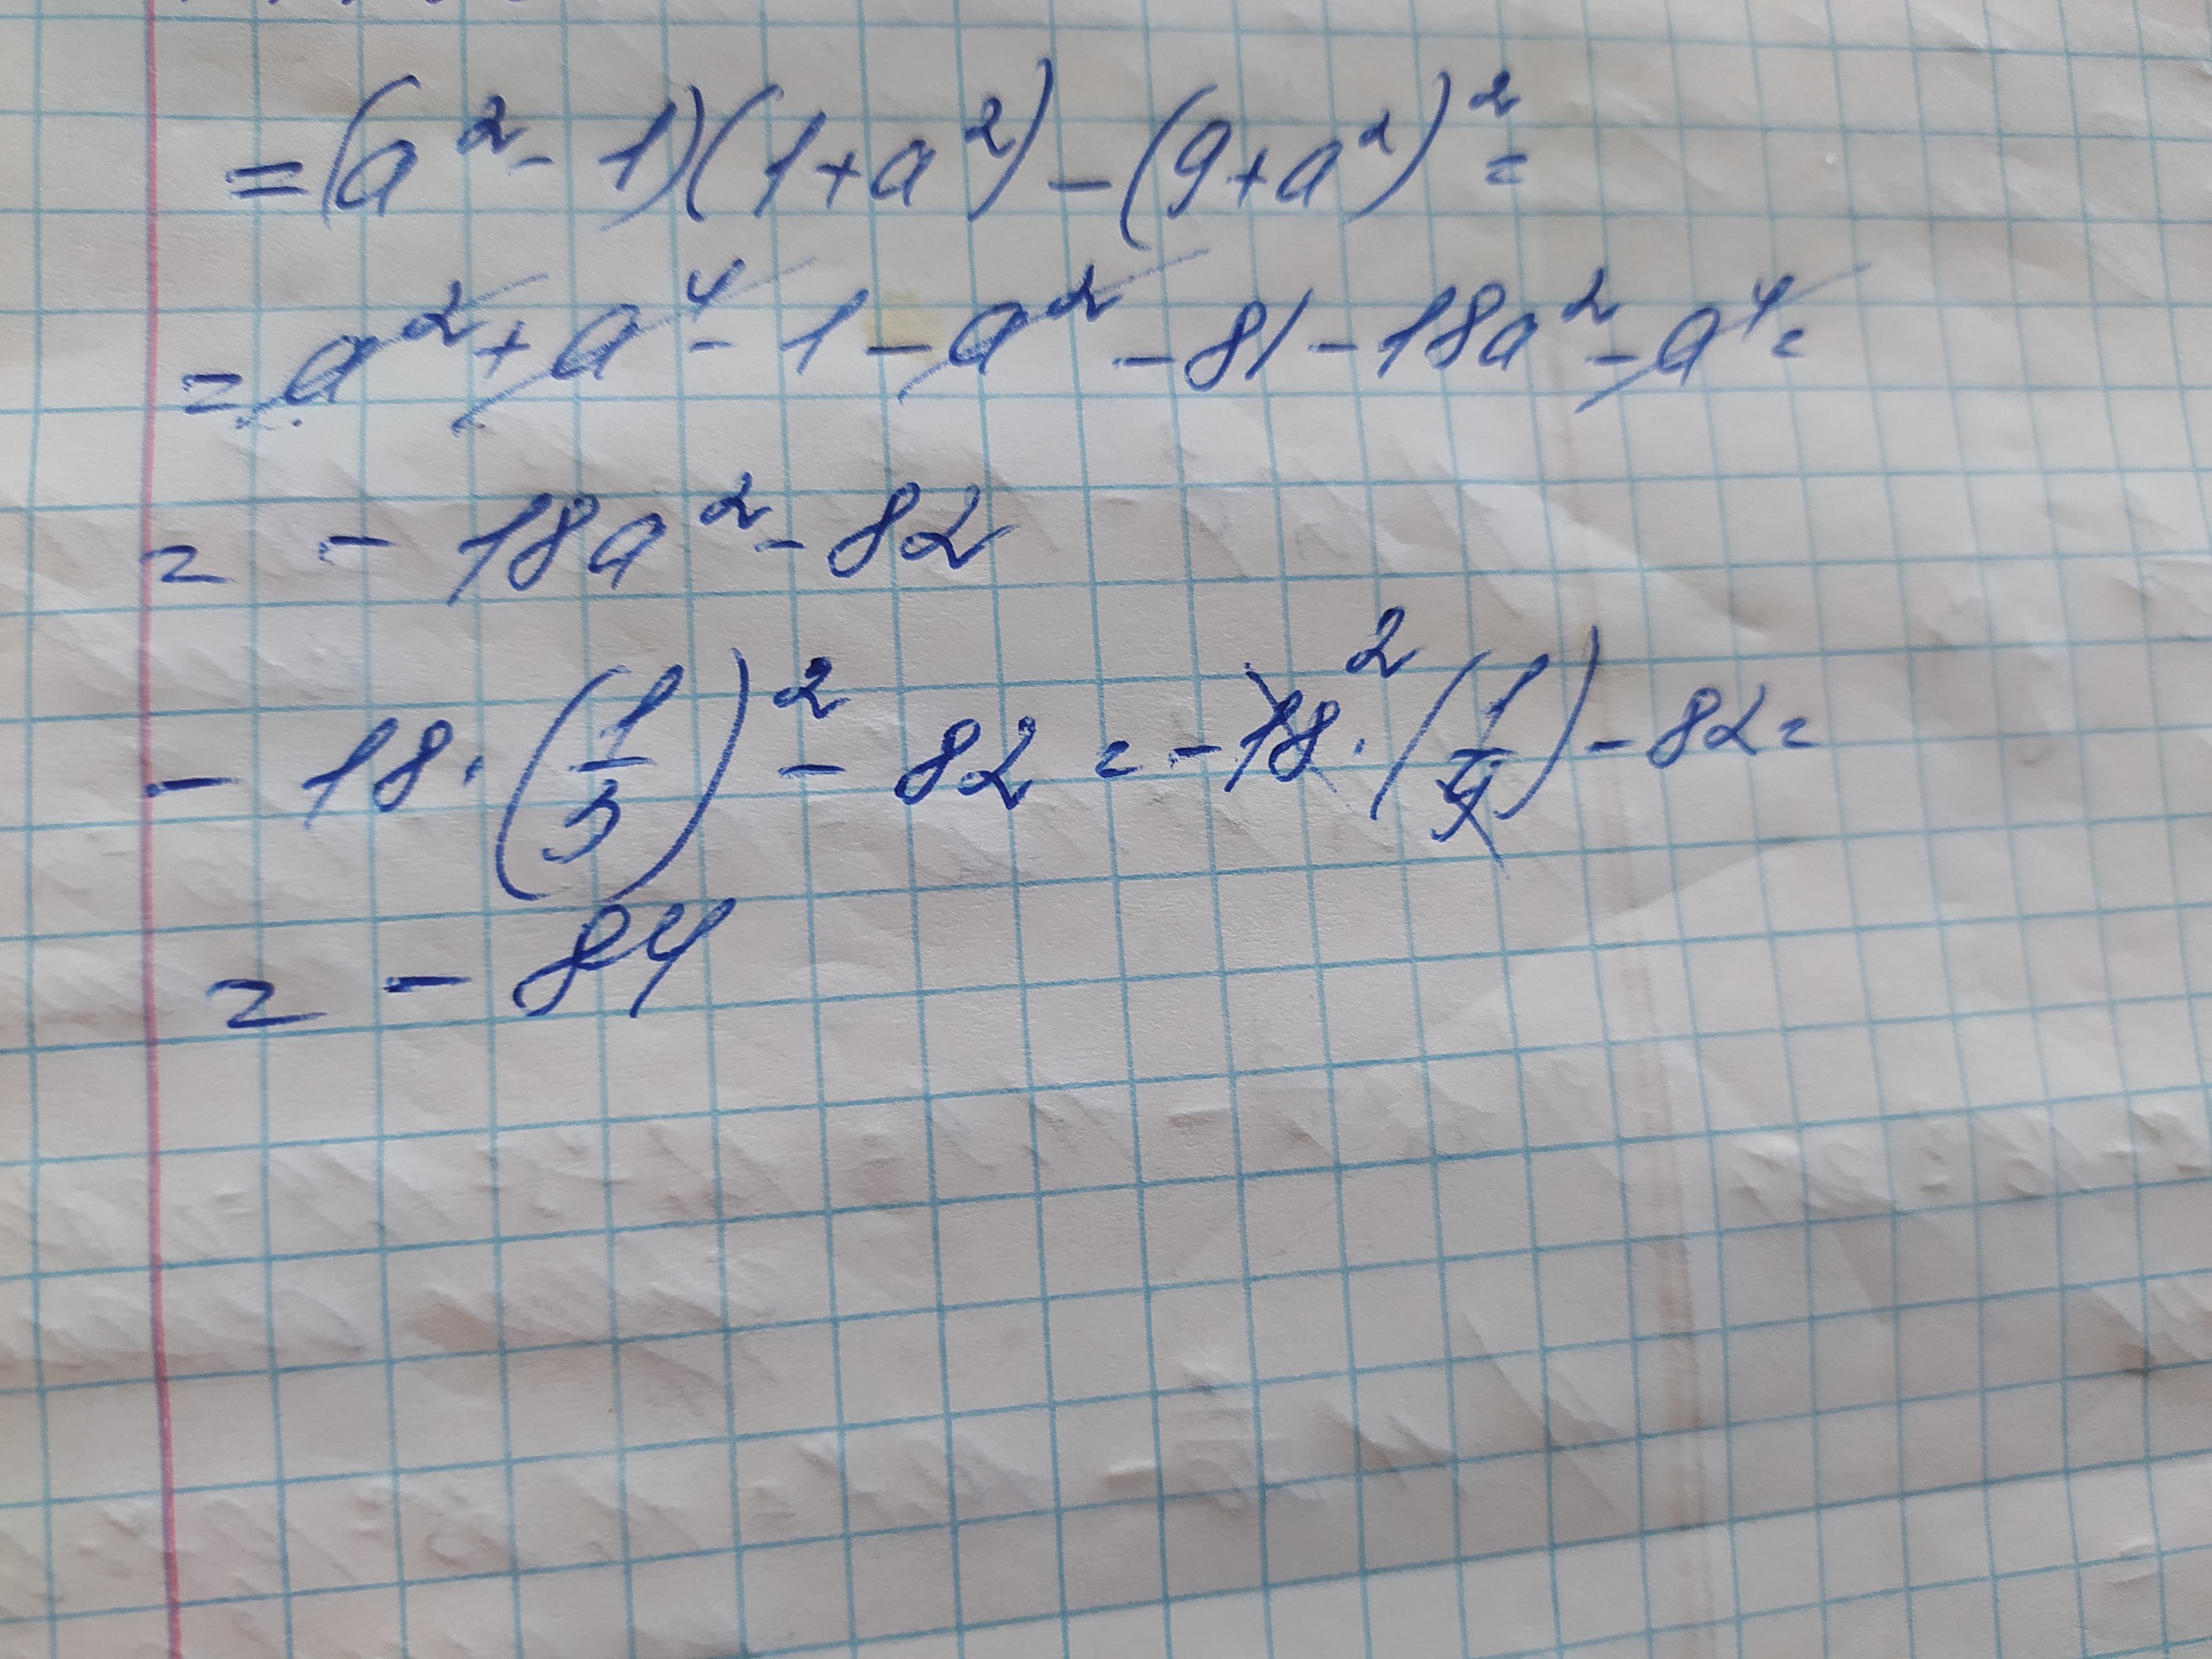 =(a²-1)(1+a²)-(9+a²)²=
=a²+a⁴-1-a²-81-18a²-a⁴=
= -18a²-82
-18·(1/3)²-82=-18²·(1/9)-82=
= -84